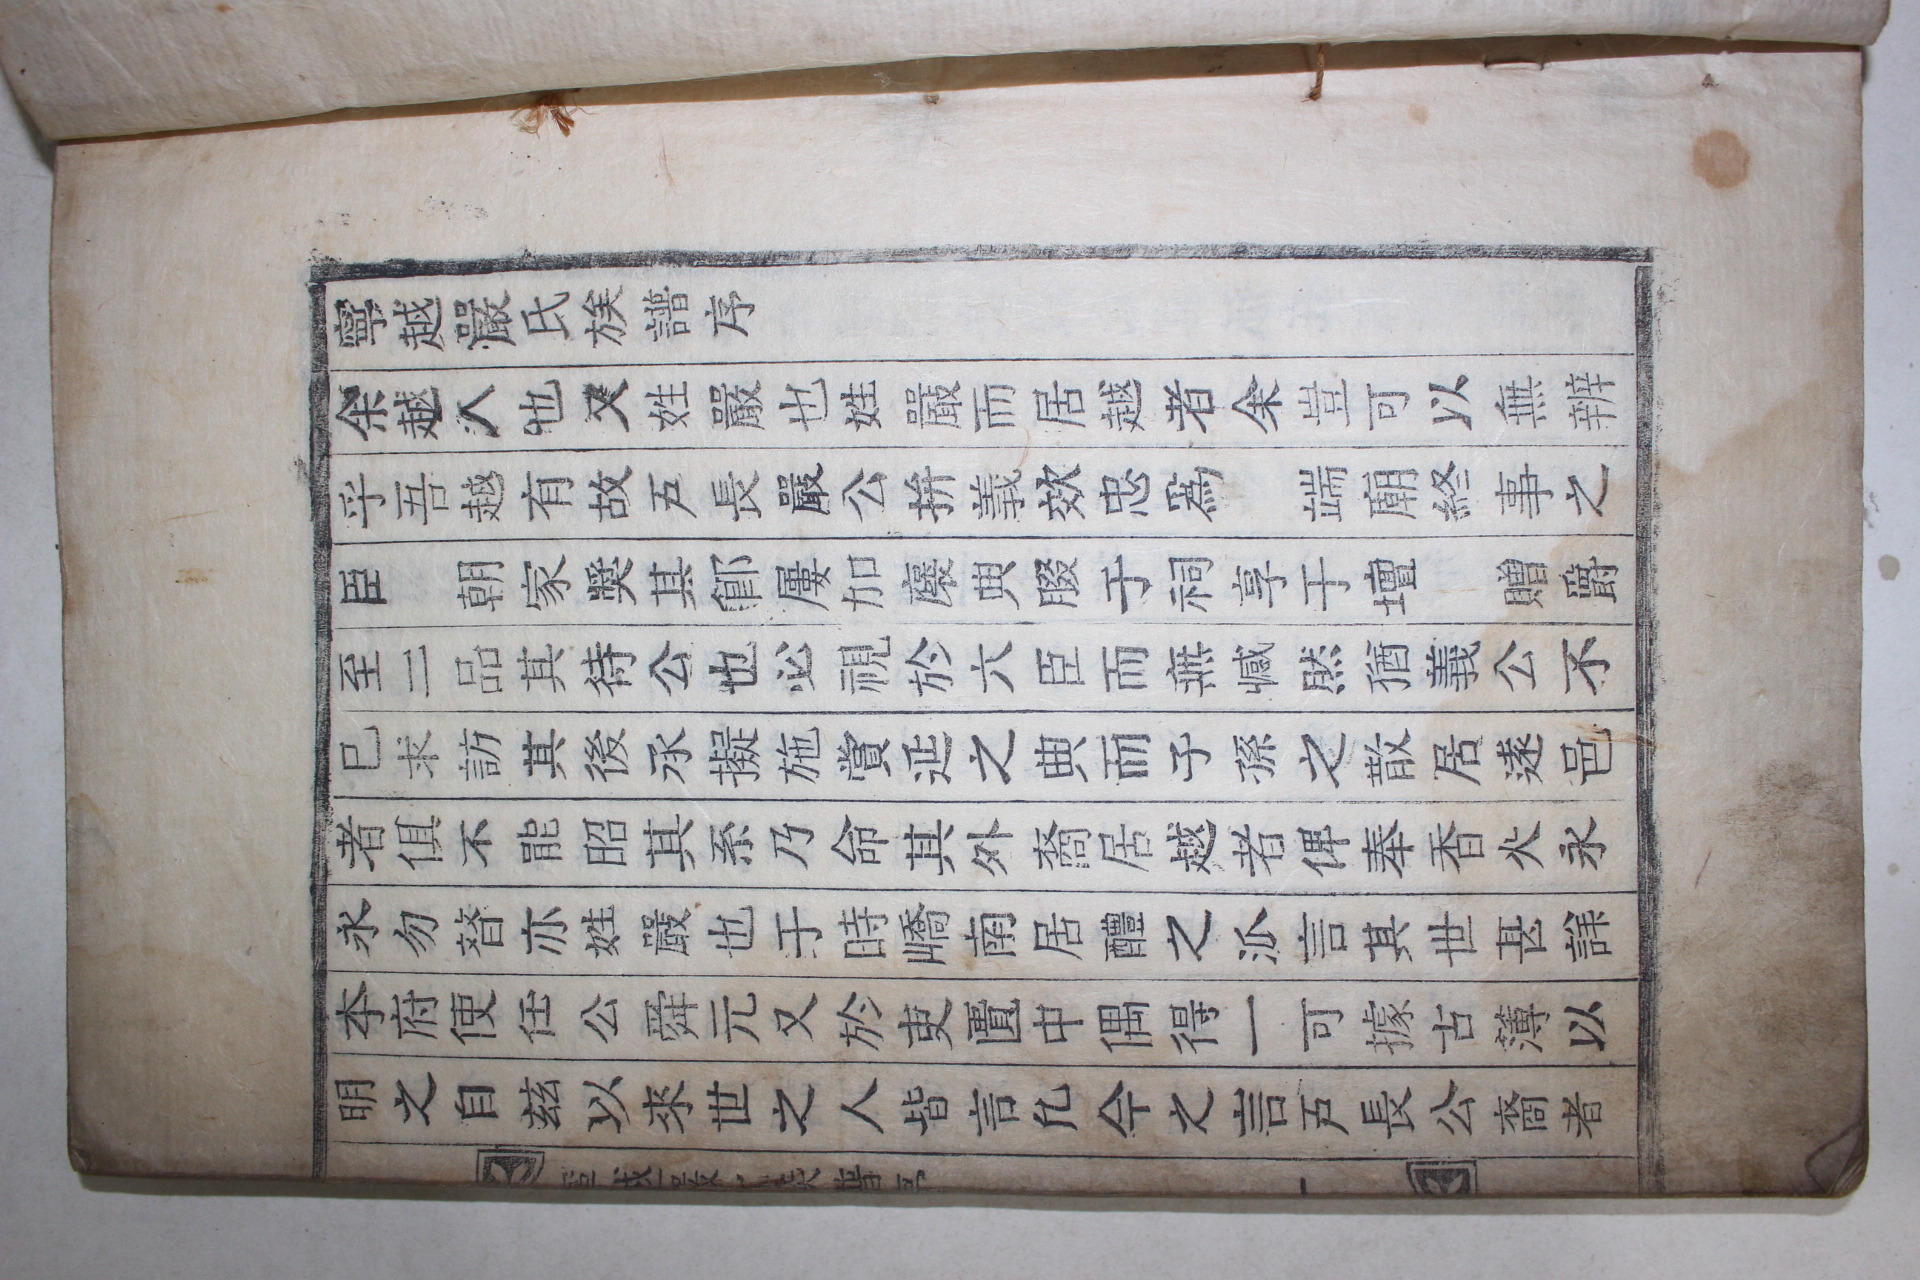 寧越嚴氏族譜序
余越人也又姓嚴也姓嚴而居越者余豈可以無辨
乎吾越有故戶長嚴公拚義效忠爲 端廟終事之
臣 朝家奬其節屢加褒典腏于祠享于壇 贈爵
至二品其待公也必視於六臣而無憾然猶義公不
已求訪其後承擬施賞延之典而子孫之散居遠邑
者俱不能昭其系乃命其外裔居越者俾奉香火永
永勿替亦姓嚴也于時嶠南居醴之派言其世甚詳
李府使任公舜元又於吏匱中偶得一可據古簿以
明之自玆以來世之人皆言凡今之言戶長公裔者
寧越嚴氏族譜序 一